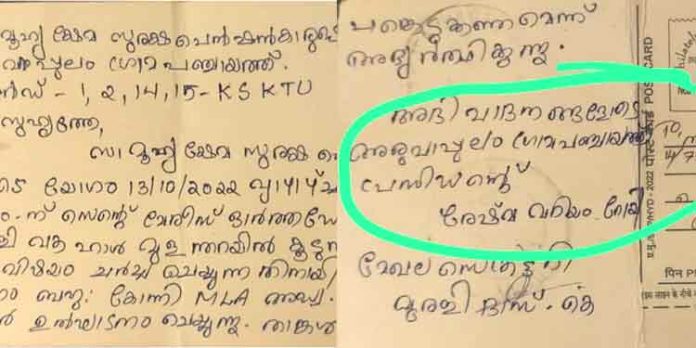 മൂഹ്യ ക്ഷേമ സുരക്ഷ പെൻഷൻകാരുടെ
വാപ്പുലം ഗ്രാമപഞ്ചായത്ത്.
ർഡ് - 1, 2, 14, 15 - KSKTU
സുഹൃത്തേ,
സാമൂഹ്യ ക്ഷേമ സുരക്ഷ പെ
ടെ യോഗം 13/10/2022 വ്യാഴാഴ്ച
ം-ന് സെന്റ് മേരീസ് ഓർത്തഡോ
ളി വക ഹാൾ മുളന്തറയിൽ കൂടുന്ന
വിഷയം ചർച്ച ചെയ്യുന്നതിനായി
ഗം ബഹു: കോന്നി MLA അഡ്വ.
ർ ഉൽഘാടനം ചെയ്യുന്നു. താങ്കൾ
പങ്കെടുക്കണമെന്ന്
അഭ്യർത്ഥിക്കുന്നു.
അഭിവാദനങ്ങളോടെ
അരുവാപ്പുലം ഗ്രാമപഞ്ചായത്ത്
പ്രസിഡന്റ്
രേഷ്മ മറിയം റോയി
മേഖല സെക്രട്ടറി
മുരളി ദാസ്. കെ
POST CARD
पोस्ट कार्ड
2022
पिन P